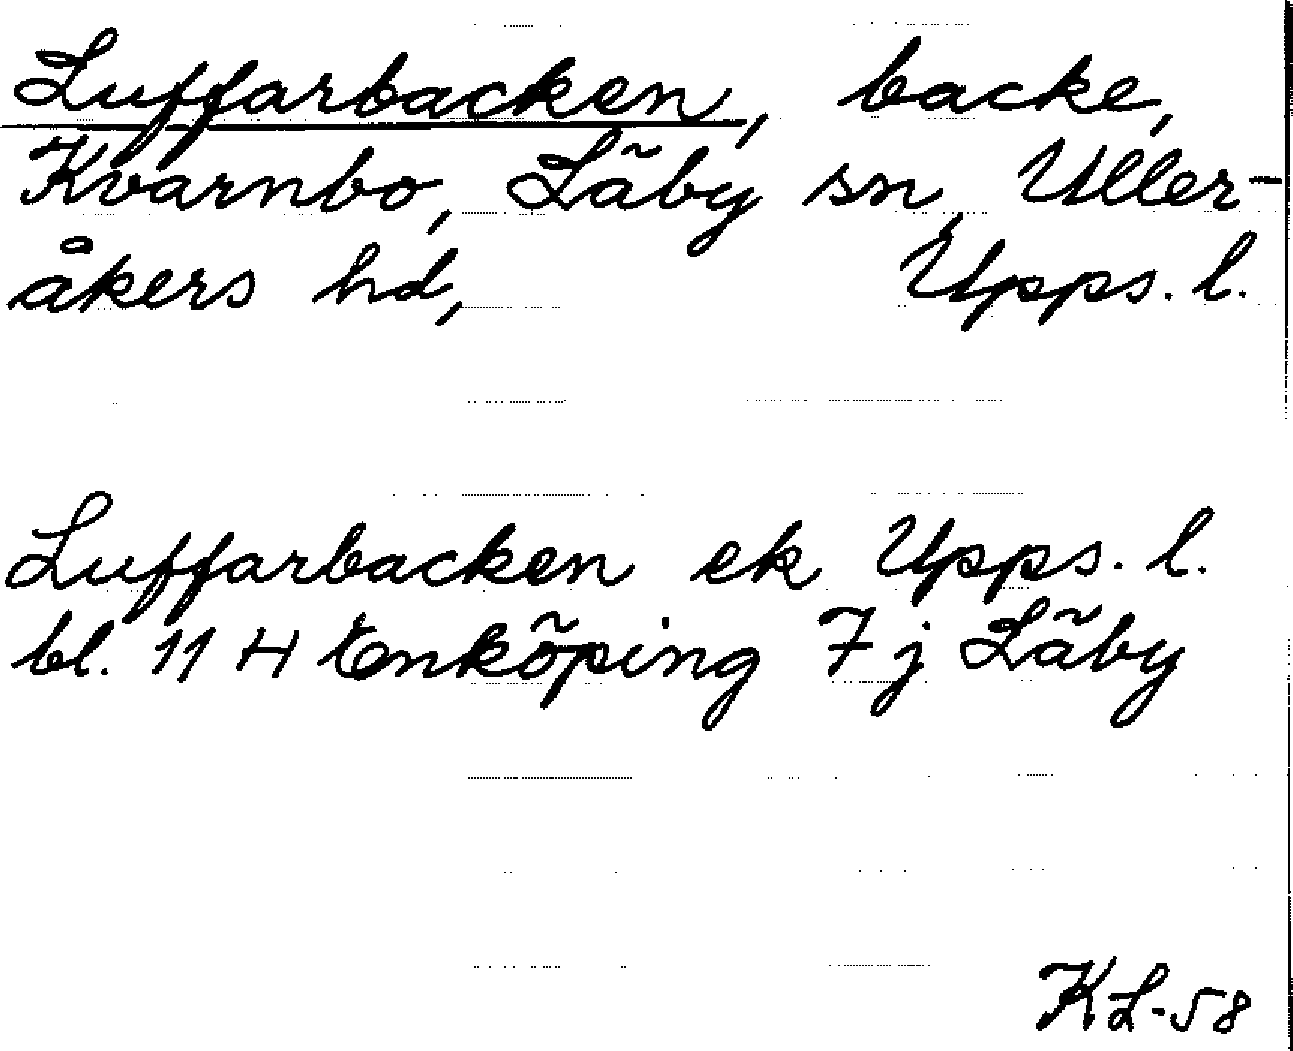 Luffarbacken, backe,
Kvarnbo, Läby sn, Uller-
åkers hd, Upps. l.
Luffarbacken ek Upps. l.
bl. 11 H Enköping 7 j Läby
KL-58